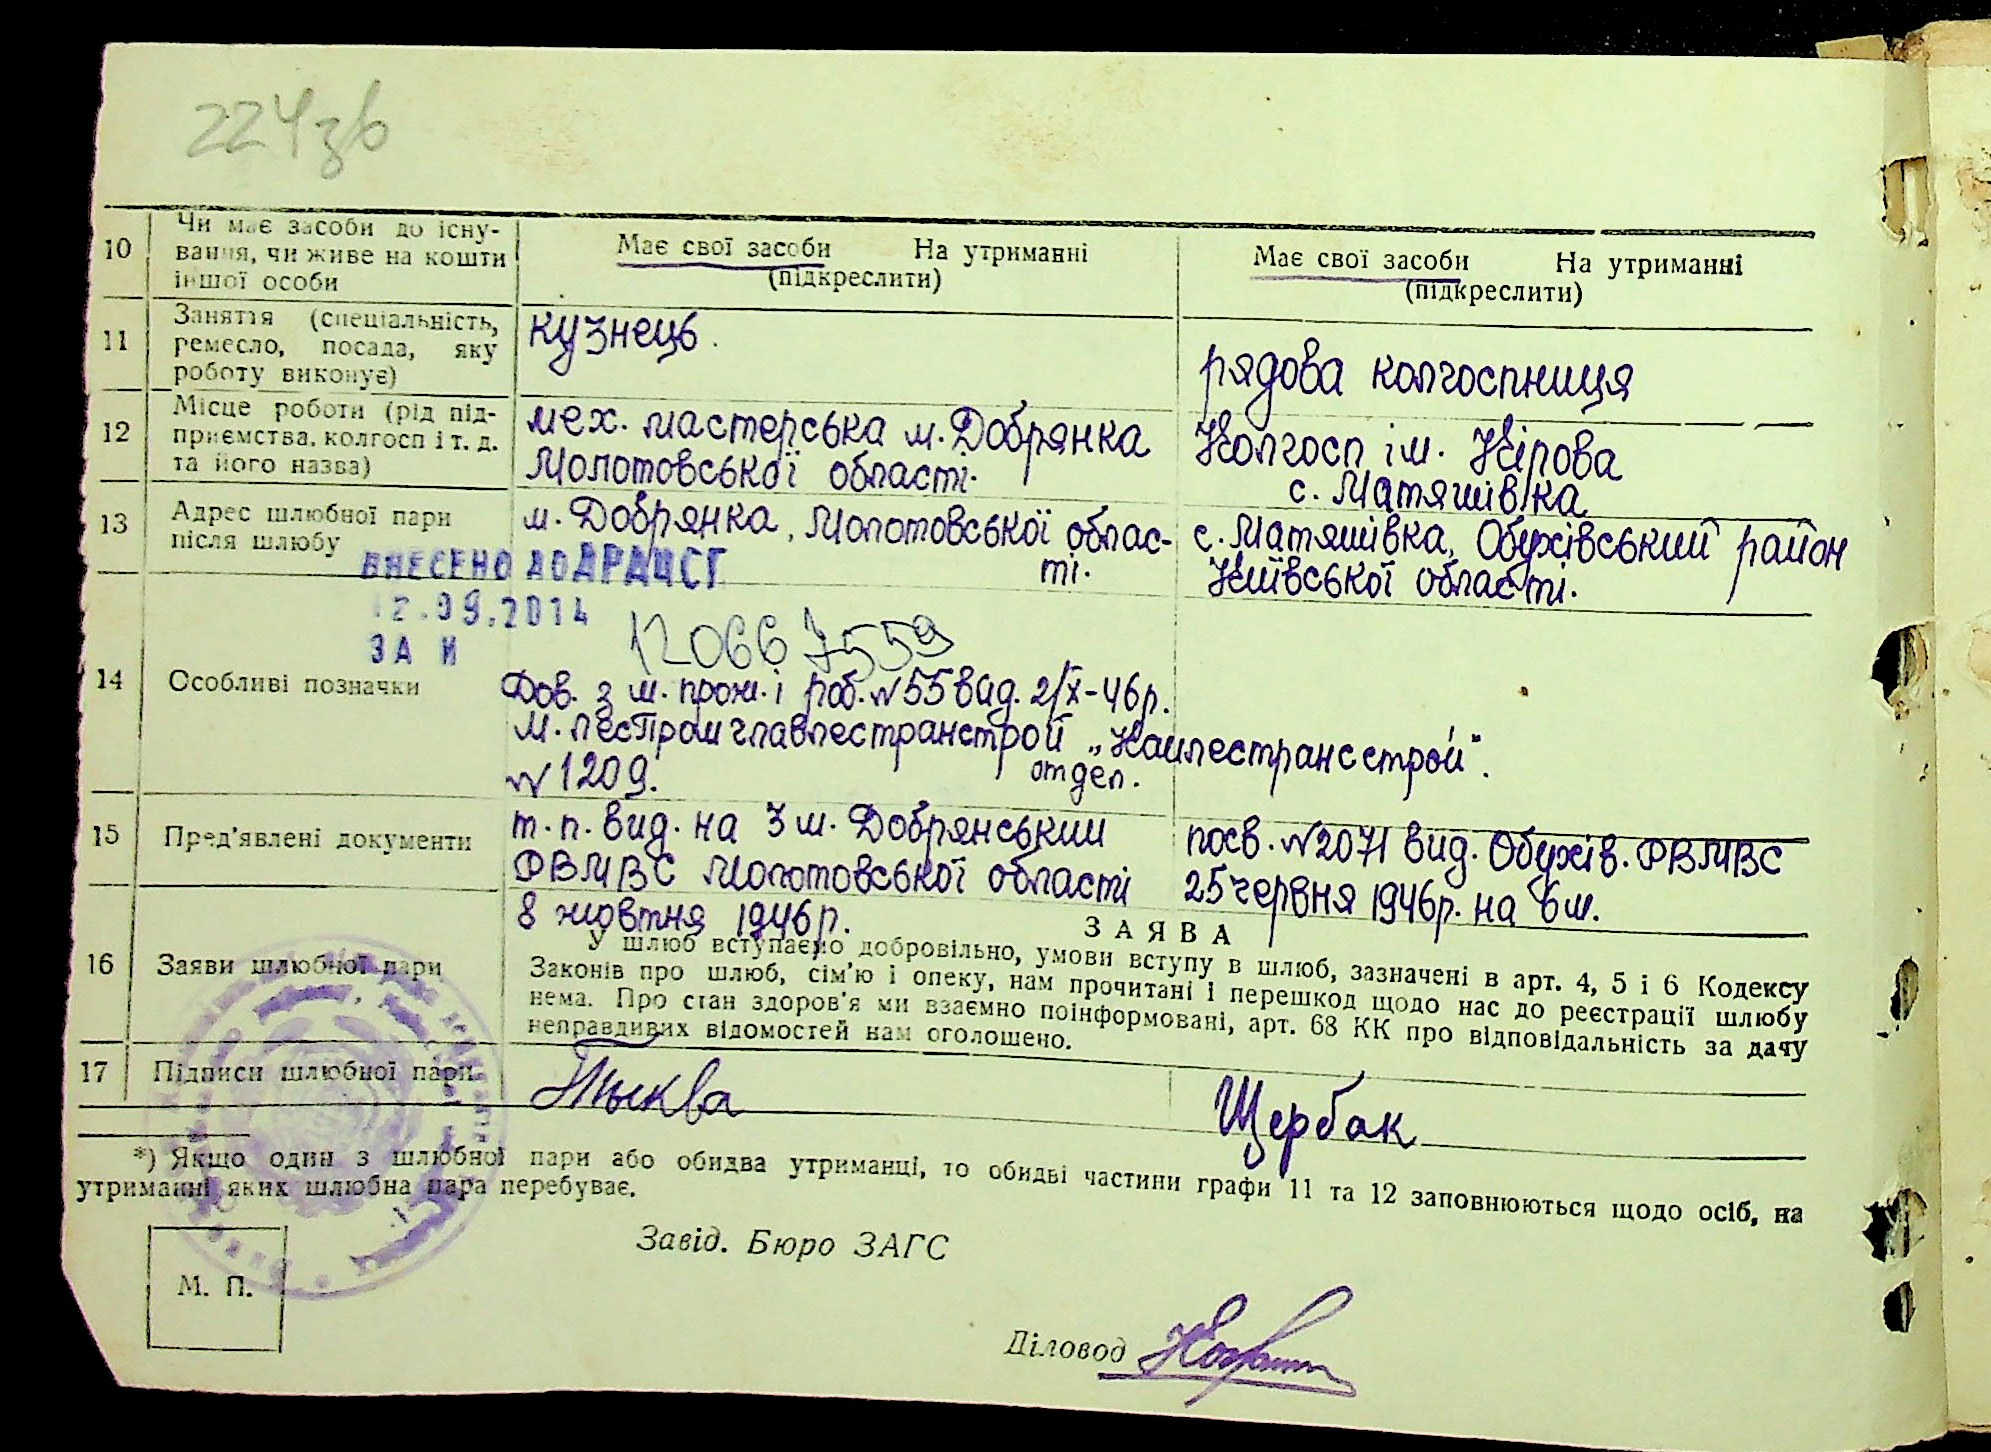 224зв
10 Чи має засоби до існу-
вання, чи живе на кошти
іншої особи
Має свої засоби На утриманні
(підкреслити)
Має свої засоби На утриманні
(підкреслити)
11 Заняття (спеціальність,
ремесло, посада, яку
роботу виконує)
кузнець.
рядова колгоспниця
12 Місце роботи (рід під-
приємства, колгосп і т. д.
та його назва)
мех. мастерська м. Добрянка
Молотовської області.
Колгосп ім. Кірова
с. Матяшівка
13 Адрес шлюбної пари
після шлюбу
м. Добрянка, Молотовської облас-
ті.
с. Матяшівка, Обухівський район
Київської області.
ВНЕСЕНО ДО ДРАЦСГ
12.09.2014
ЗА N
12066 7559
14 Особливі позначки
Дов. з м. прож. і роб. №55 вид. 2/X-46р.
М. лесПромглавлестранстрой „Камлестрансстрой".
№1209. отдел.
15 Пред'явлені документи
т.п. вид. на 3 м. Добрянський
РВМВС Молотовської області
8 жовтня 1946р.
посв. №2071 вид. Обухів. РВМВС
25 червня 1946р. на 6м.
16 Заяви шлюбної пари
ЗАЯВА
У шлюб вступаємо добровільно, умови вступу в шлюб, зазначені в арт. 4, 5 і 6 Кодексу
Законів про шлюб, сім'ю і опеку, нам прочитані і перешкод щодо нас до реєстрації шлюбу
нема. Про стан здоров'я ми взаємно поінформовані, арт. 68 КК про відповідальність за дачу
неправдивих відомостей нам оголошено.
17 Підписи шлюбної пари
Тыква
Щербак
*) Якщо один з шлюбної пари або обидва утриманці, то обидві частини графи 11 та 12 заповнюються щодо осіб, на
утриманні яких шлюбна пара перебуває.
Завід. Бюро ЗАГС
М. П.
Діловод